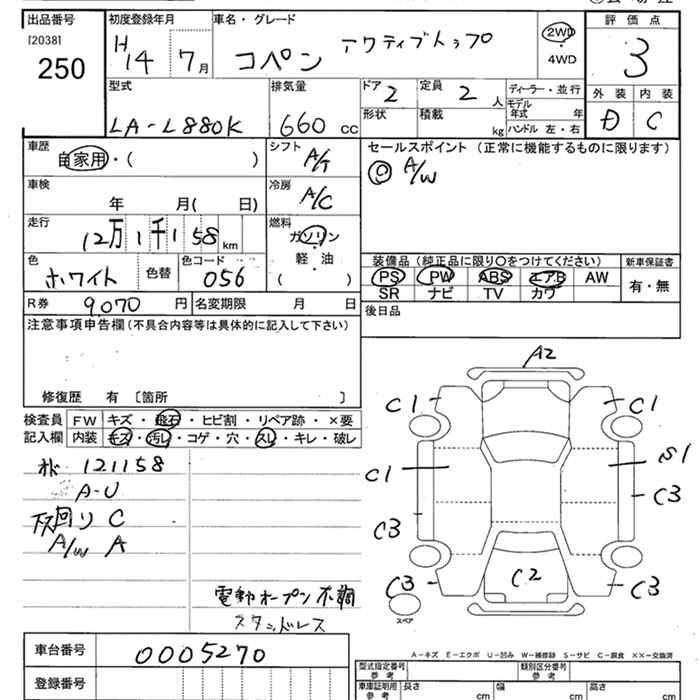 出品番号 初度登録年月 車名・グレード 評価点
[2038] 250
H14 7月 コペン アクティブトップ 2WD 4WD 3
型式 排気量 ドア 2 定員 2人 ディーラー・並行 外装 内装
LA-L880K 660 cc 形状 積載 kg モデル年式 年 ハンドル 左・右 D C
車歴 自家用・( ) シフト A/T セールスポイント (正常に機能するものに限ります)
◎ A/W
車検 年 月( 日) 冷房 A/C
走行 12万1千158km 燃料 ガソリン 軽・油 ( )
色 ホワイト 色替 色コード 056
装備品 (純正品に限り○をつけてください) 新車保証書
PS PW ABS エアB AW 有・無
SR ナビ TV カワ
R券 9,070円 名変期限 月 日 後日品
注意事項申告欄 (不具合内容等は具体的に記入して下さい)
修復歴 有 〔箇所 〕
検査員 FW キズ・飛石・ヒビ割・リペア跡・×要
記入欄 内装 キズ・汚れ・コゲ・穴・スレ・キレ・破レ
A2
C1 C1
C1 S1
C3 C3
C3 C2 C3
スペア
121158
A-U
下回り C
A/W A
電動オープン不調
スタッドレス
A-キズ E-エクボ U-凹み W-補修跡 S-サビ C-腐食 ××-交換済
車台番号 0005270
登録番号
型式指定番号 参考 類別区分番号 参考
車庫証明用 参考 長さ cm 幅 cm 高さ cm